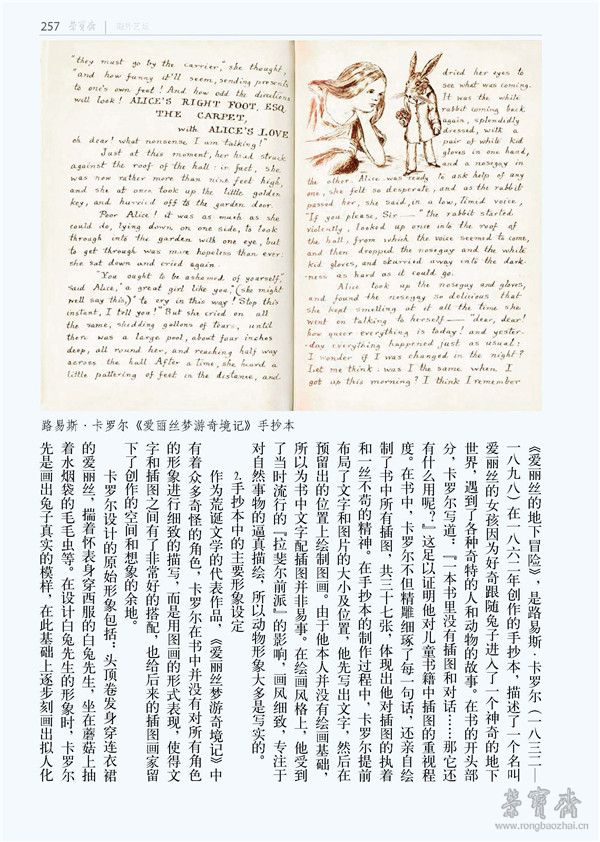 257 榮寶齋 海外艺坛
"they must go by the carrier," she thought,
"and how funny it'll seem, sending presents
to one's own feet! And how odd the directions
will look! ALICE'S RIGHT FOOT, ESQ.
THE CARPET,
with ALICE'S LOVE
oh dear! what nonsense I am talking!"
Just at this moment, her head struck
against the roof of the hall: in fact, she
was now rather more than nine feet high,
and she at once took up the little golden
key, and hurried off to the garden door.
Poor Alice! it was as much as she
could do, lying down on one side, to look
through into the garden with one eye, but
to get through was more hopeless than ever:
she sat down and cried again.
"You ought to be ashamed of yourself,"
said Alice, "a great girl like you," (she might
well say this,) "to cry in this way! Stop this
instant, I tell you!" But she cried on all
the same, shedding gallons of tears, until
there was a large pool, about four inches
deep, all round her, and reaching half way
across the hall. After a time, she heard a
little pattering of feet in the distance, and
dried her eyes to
see what was coming.
It was the white
rabbit coming back
again, splendidly
dressed, with a
pair of white kid
gloves in one hand,
and a nosegay in
the other. Alice was ready to ask help of any
one, she felt so desperate, and as the rabbit
passed her, she said, in a low, timid voice,
"If you please, Sir—" the rabbit started
violently, looked up once into the roof of
the hall, from which the voice seemed to come,
and then dropped the nosegay and the white
kid gloves, and skurried away into the dark-
-ness as hard as it could go.
Alice took up the nosegay and gloves,
and found the nosegay so delicious that
she kept smelling at it all the time she
went on talking to herself— "dear, dear!
how queer everything is today! and yester-
-day everything happened just as usual:
I wonder if I was changed in the night?
Let me think: was I the same when I
got up this morning? I think I remember
路易斯·卡罗尔《爱丽丝梦游奇境记》手抄本
《爱丽丝的地下冒险》，是路易斯·卡罗尔（一八三二—
一八九八）在一八六二年创作的手抄本，描述了一个名叫
爱丽丝的女孩因为好奇跟随兔子进入了一个神奇的地下
世界，遇到了各种奇特的人和动物的故事。在书的开头部
分，卡罗尔写道：『一本书里没有插图和对话……那它还
有什么用呢？』这足以证明他对儿童书籍中插图的重视程
度。在书中，卡罗尔不但精雕细琢了每一句话，还亲自绘
制了书中所有插图，共三十七张，体现出他对插图的执着
和一丝不苟的精神。在手抄本的制作过程中，卡罗尔提前
布局了文字和图片的大小及位置，他先写出文字，然后在
预留出的位置上绘制图画。由于他本人并没有绘画基础，
所以为书中文字配插图并非易事。在绘画风格上，他受到
了当时流行的『拉斐尔前派』的影响，画风细致，专注于
对自然事物的逼真描绘，所以动物形象大多是写实的。
2.手抄本中的主要形象设定
作为荒诞文学的代表作品，《爱丽丝梦游奇境记》中
有着众多奇怪的角色，卡罗尔在书中并没有对所有角色
的形象进行细致的描写，而是用图画的形式表现，使得文
字和插图之间有了非常好的搭配，也给后来的插图画家留
下了创作的空间和想象的余地。
卡罗尔设计的原始形象包括：头顶卷发身穿连衣裙
的爱丽丝，揣着怀表身穿西服的白兔先生，坐在蘑菇上抽
着水烟袋的毛毛虫等。在设计白兔先生的形象时，卡罗尔
先是画出兔子真实的模样，在此基础上逐步刻画出拟人化
榮寶齋
www.rongbaozhai.cn